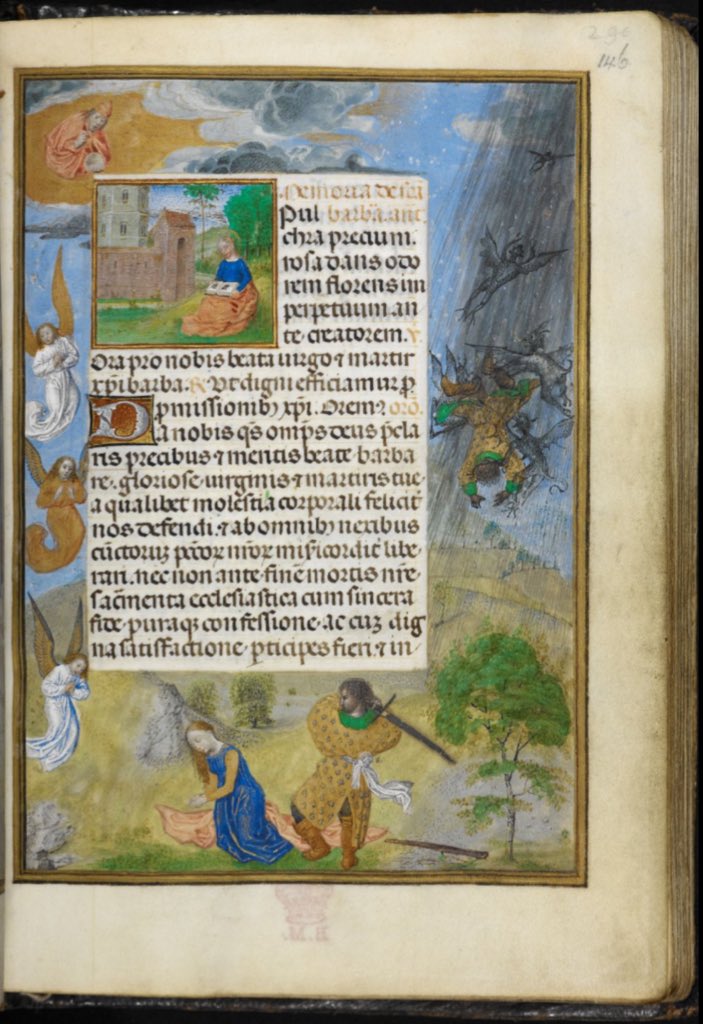 146
Memoria de scā
Pul barbā. anā.
chra precium.
rosa dans odo
rem florens in
perpetuum an
te creatorem. V.
Ora pro nobis beata uirgo ⁊ martir
xp̄i barba. R. Vt digni efficiamur p̄
pmissionibꝫ xp̄i. Orem⁹ orō.
Da nobis q̄s omp̄s deus p̄cla
ris precibus ⁊ mentis beate barba
re. gloriose. uirginis ⁊ martiris tue.
a qualibet molestia corporali felicit̄
nos defendi. ⁊ ab omnibꝫ nexibus
cūctoruꝫ pc̄oꝝ nr̄oꝝ misicordit̄ libe
rari. nec non ante finē mortis nr̄e
sac̄menta ecclesiastica cum sincera
fide. puraqꝫ confessione. ac cuꝫ dig
na satisfactione. pticipes fieri. ⁊ in